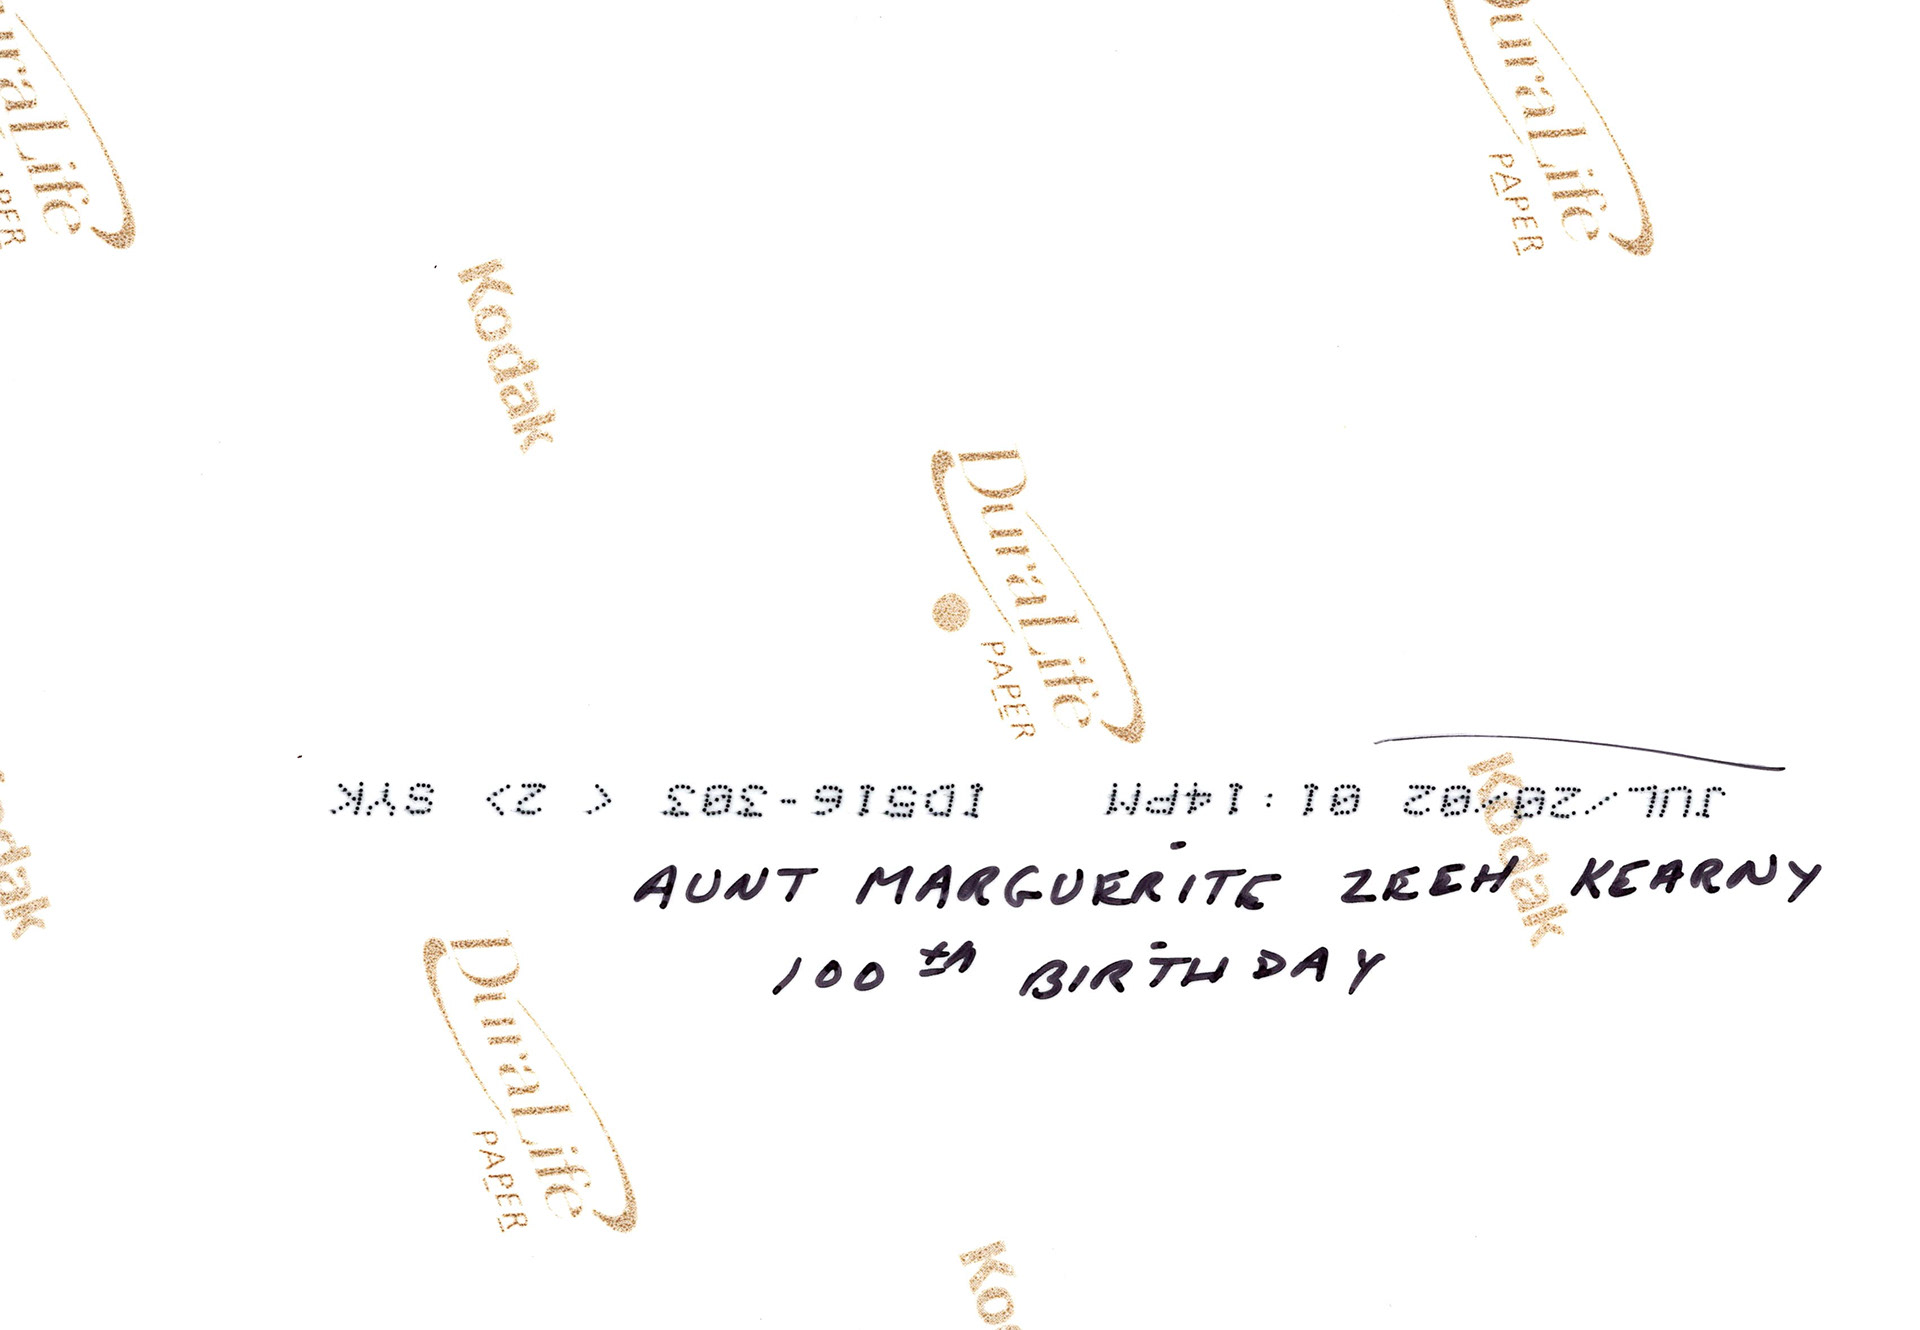 DuraLife
PAPER
DuraLife
PAPER
Kodak
DuraLife
PAPER
JUL/20/02 01:14PM ID516-303 < 2> SYK
Kodak
Kodak
AUNT MARGUERITE ZEEH KEARNY
100th BIRTHDAY
DuraLife
PAPER
Kodak